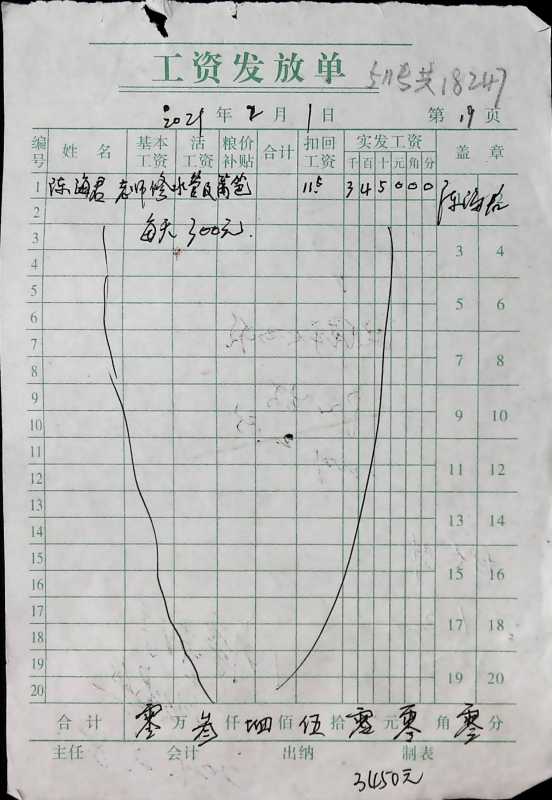 工资发放单
5月号共18247
2021年2月1日 第19页
编号 姓名 基本工资 活工资 粮价补贴 合计 扣回工资 实发工资 千百十元角分 盖章
1 陈海君 老师修水管及篱笆 11.5 345000 陈海君
2 每天300元.
3 3 4
4
5 5 6
6
7 7 8
8
9 9 10
10
11 11 12
12
13 13 14
14
15 15 16
16
17 17 18
18
19 19 20
20
合计 零万叁仟肆佰伍拾零元零角零分
主任 会计 出纳 制表
3450元